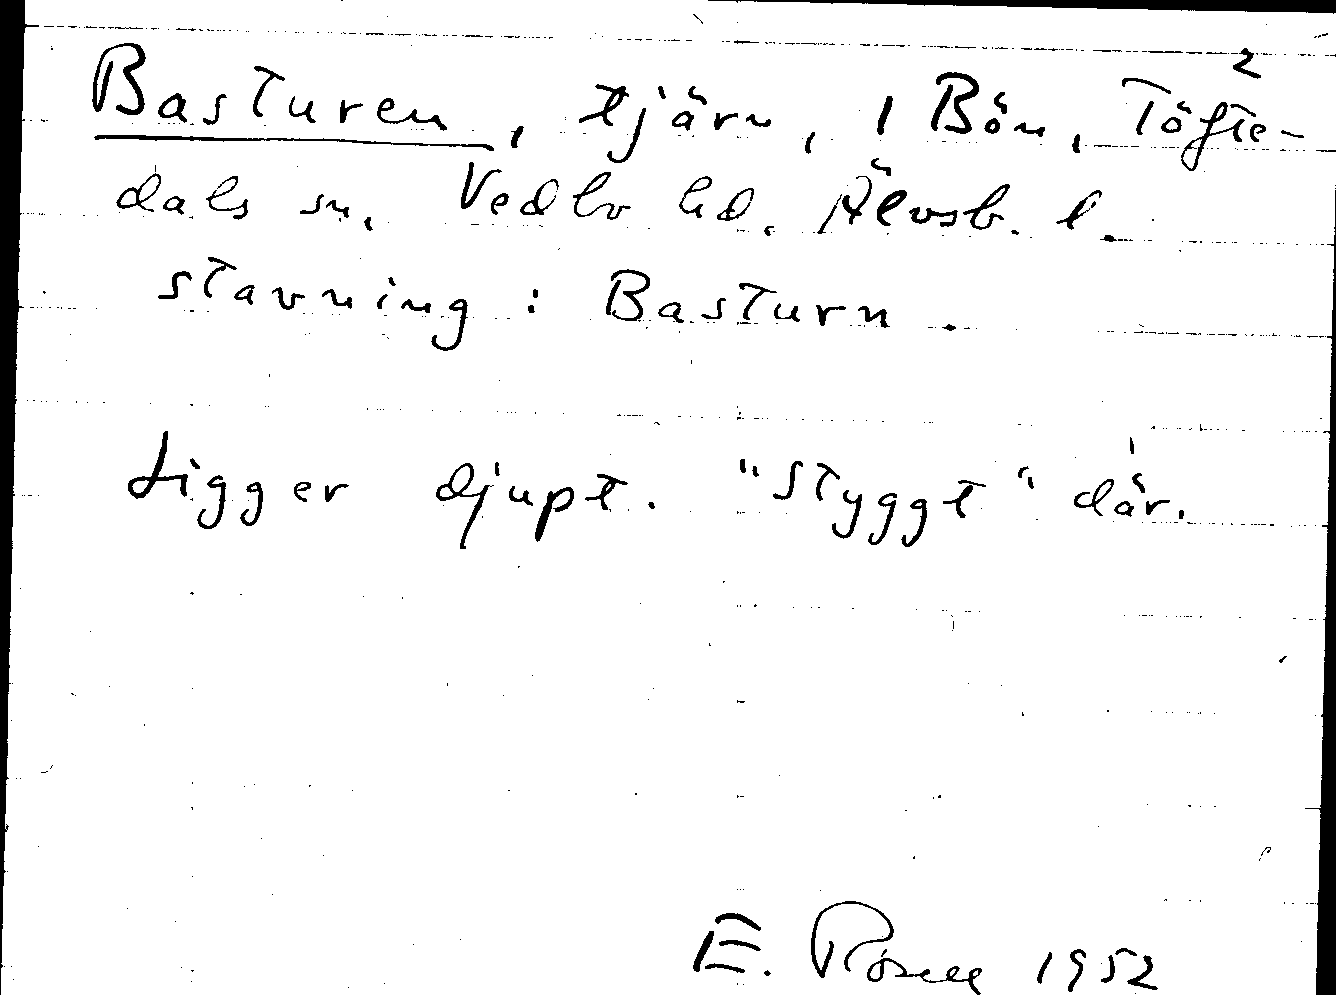 2
Basturen, tjärn, i Bön, Töfte-
dals sn. Vedbo hd. Älvsb. l.
stavning: Basturn.
Ligger djupt. "Styggt" där.
E. Rosell 1952